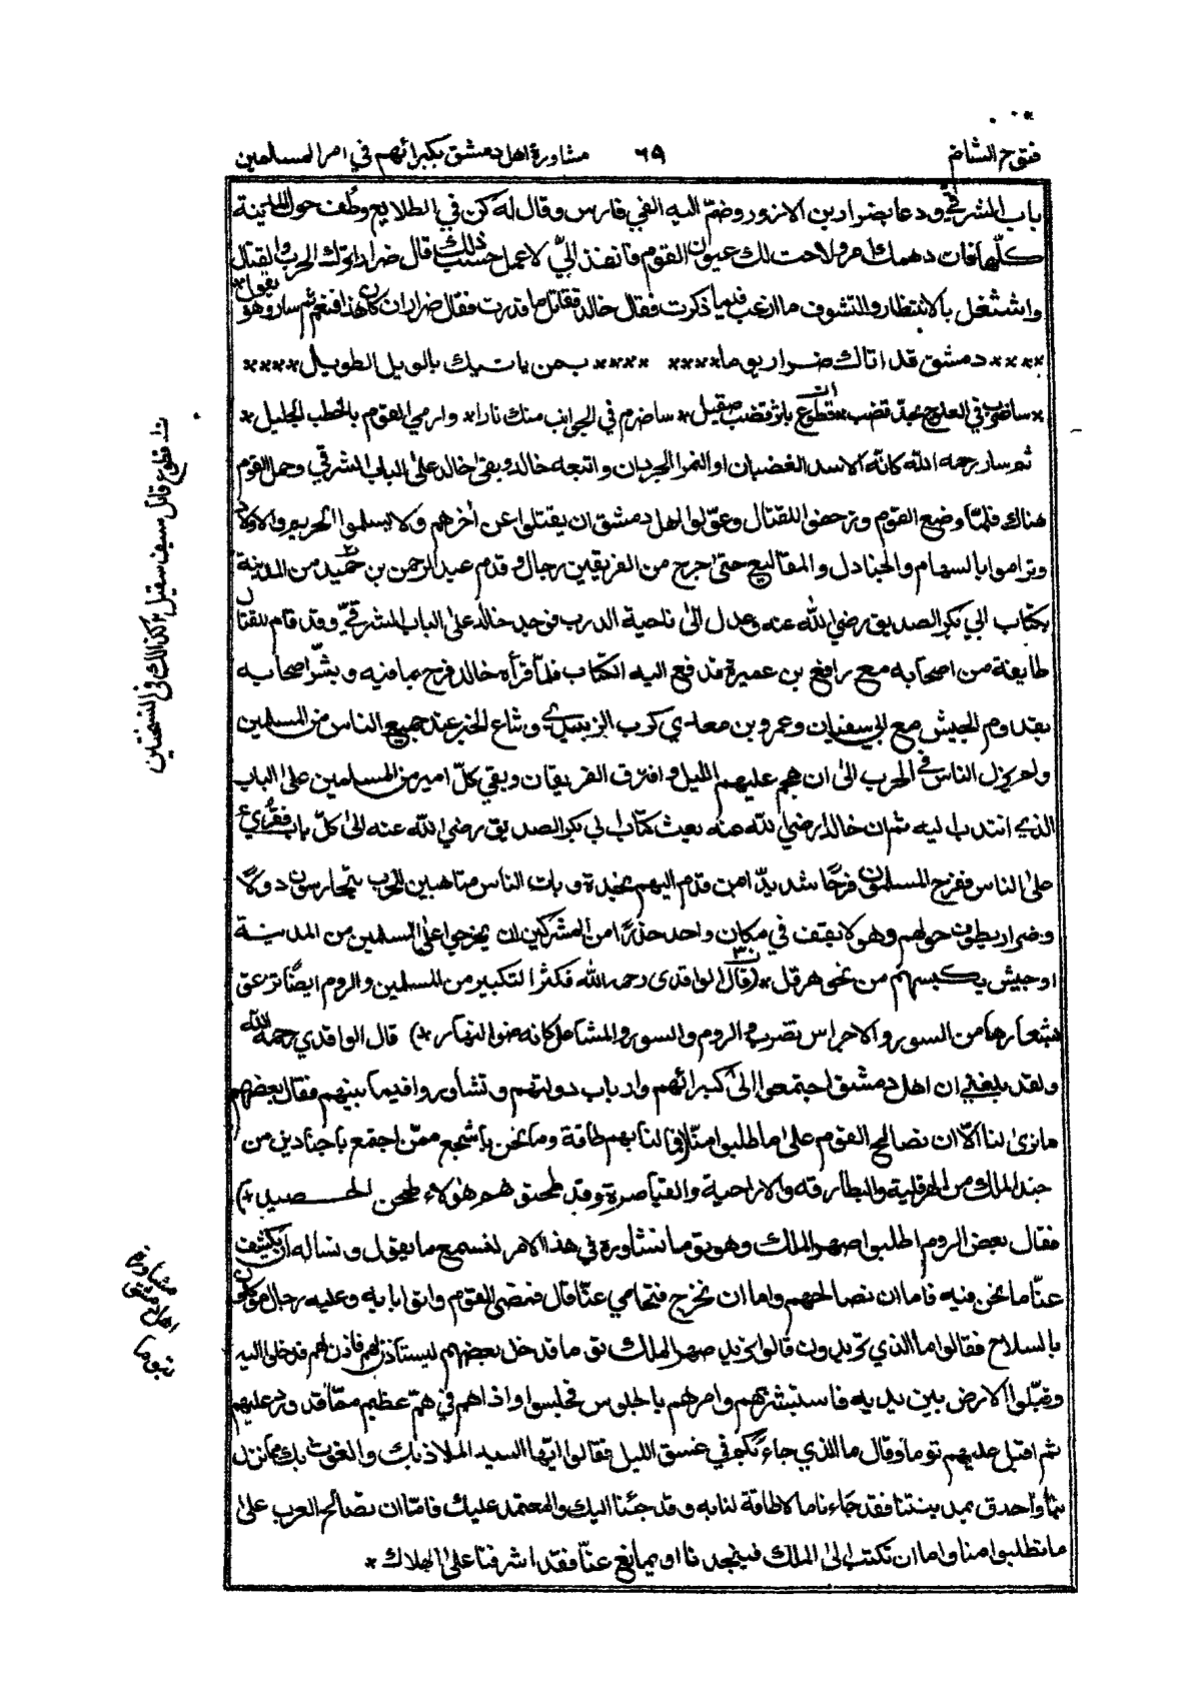 فتوح الشام ٦٩ مشاورة اهل دمشق بكبرائهم في امر المسلمين
باب الشرقي ودعا بضرار بن الازور وضمّ اليه الفي فارس وقال له كن في الطلايع وطُف حول المدينة
كلّها فان دهمك امر ولاحت لك عيون القوم فانفذ اليّ لاعمل حسب ذلك قال ضرار اترك الحرب والقتال
واشتغل بالانتظار والتشوف ما ارغب فيما ذكرت فقال خالد فقاتل ما قدرت فقال ضرار ان كان هذا فنعم ثم سار وهو يقول
**** دمشق قد اتاك ضرار يوما **** **** بمن ياتيك بالويل الطويل ****
* ساضرب في العلوج بحدّ قضب * قطوع باثر قضب صقيل * ساضرم في الجوانب منك نارا * وارمي القوم بالخطب الجليل *
ثم سار رحمه الله كانه الاسد الغضبان او النمر الحردان واتبعه خالد وبقى خالد على الباب الشرقي وحمل القوم
هناك فلمّا وضع القوم وزحفوا للقتال وعوّلوا اهل دمشق ان يقتلوا عن أخرهم ولا يسلموا الحريم والاولاد
وتراموا بالسهام والجنادل والمقاليع حتى اجرح من الفريقين رجال وقدم عبد الرحمن بن حميد من المدينة
بكتاب ابي بكر الصديق رضي الله عنه وعدل الى ناحية الدرب فوجد خالد على الباب الشرقيّ وقد قام للقتال
طايفة من اصحابه مع رافع بن عميرة فدفع اليه الكتاب فلمّا قرأه خالد فرح بما فيه وبشّر اصحابه
بقدوم الجيش مع ابي سفيان وعمرو بن معدي كرب الزبيدي وشاع الخبر عند جميع الناس من المسلمين
ولم يزل الناس في الحرب الى ان هجم عليهم الليل وافترق الفريقان وبقي كلّ امير من المسلمين على الباب
الذي انتدب اليه ثم ان خالدا رضي الله عنه بعث كتاب ابي بكر الصديق رضي الله عنه الى كلّ باب فقُرِئ
على الناس ففرح المسلمون فرحًا شديدًا بمن قدم اليهم بنجدة وبات الناس متاهبين للحرب يتحارسون دولًا
وضرار يطوف حولهم وهو لا يقف في مكان واحد حذرًا من المشركين ان يخرجوا على المسلمين من المدينة
او جيش يكبسهم من نحو هرقل * (قال الواقدي رحمه الله فكثر التكبير من المسلمين والروم ايضًا تزعق
بشعارها من السور والاجراس تضرب والروم والسور والمشاعل كانه ضوا النهار *) قال الواقدي رحمه الله
ولقد بلغني ان اهل دمشق اجتمعوا الى كبرائهم وارباب دولتهم وتشاوروا فيما بينهم فقال بعضهم
ما نرى لنا الا ان نصالح القوم على ما طلبوا منّا (فما لنا بهم طاقة وما نحن باشجع ممّن اجتمع باجنادين من
جند الملك من الهرقلية والبطارقه والاراحية والقياصرة وقد طحنوهم هؤلاء طحن الحصيد *)
فقال بعض الروم اطلبوا صهر الملك وهو توما نشاوره في هذا الامر لنسمع ما يقول ونساله ان يكشف
عنّا ما نحن فيه فاما ان نصالحهم واما ان نخرج فنحامي عنّا قال فمضى القوم واتوا بابه وعليه رجال موكلون
بالسلاح فقالوا ما الذي تريدون قالوا نريد صهر الملك توما فدخل بعضهم ليستأذن لهم فاذن لهم فدخلوا اليه
وقبّلوا الارض بين يديه فاستبشر بهم وامرهم بالجلوس فجلسوا واذاهم في همّ عظيم ممّا قد ورد عليهم
ثم اقبل عليهم توما وقال ما الذي جاء بكم في غسق الليل فقالوا ايّها السيد الملاذ بك والغوث بك ممّا نزل
بنا واحدق بمدينتنا فقد جاءنا ما لا طاقة لنا به وقد جئنا اليك والمعتمد عليك فامّا ان تصالح العرب على
ما تطلبوا منا واما ان تكتب الى الملك فينجدنا او يمانع عنّا فقد اشرفنا على الهلاك *
كذلك في النسختين
مشاورة
اهل دمشق
بتوما